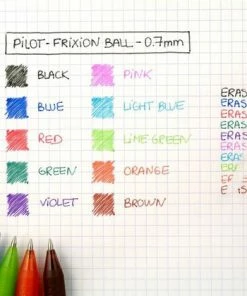 PILOT-FRIXION BALL - 0.7mm
BLACK PINK
BLUE LIGHT BLUE
RED LIME GREEN
GREEN ORANGE
VIOLET BROWN
ERAS
ERAS
ERAS
ERAS
ERAS
ERAS
ERAS